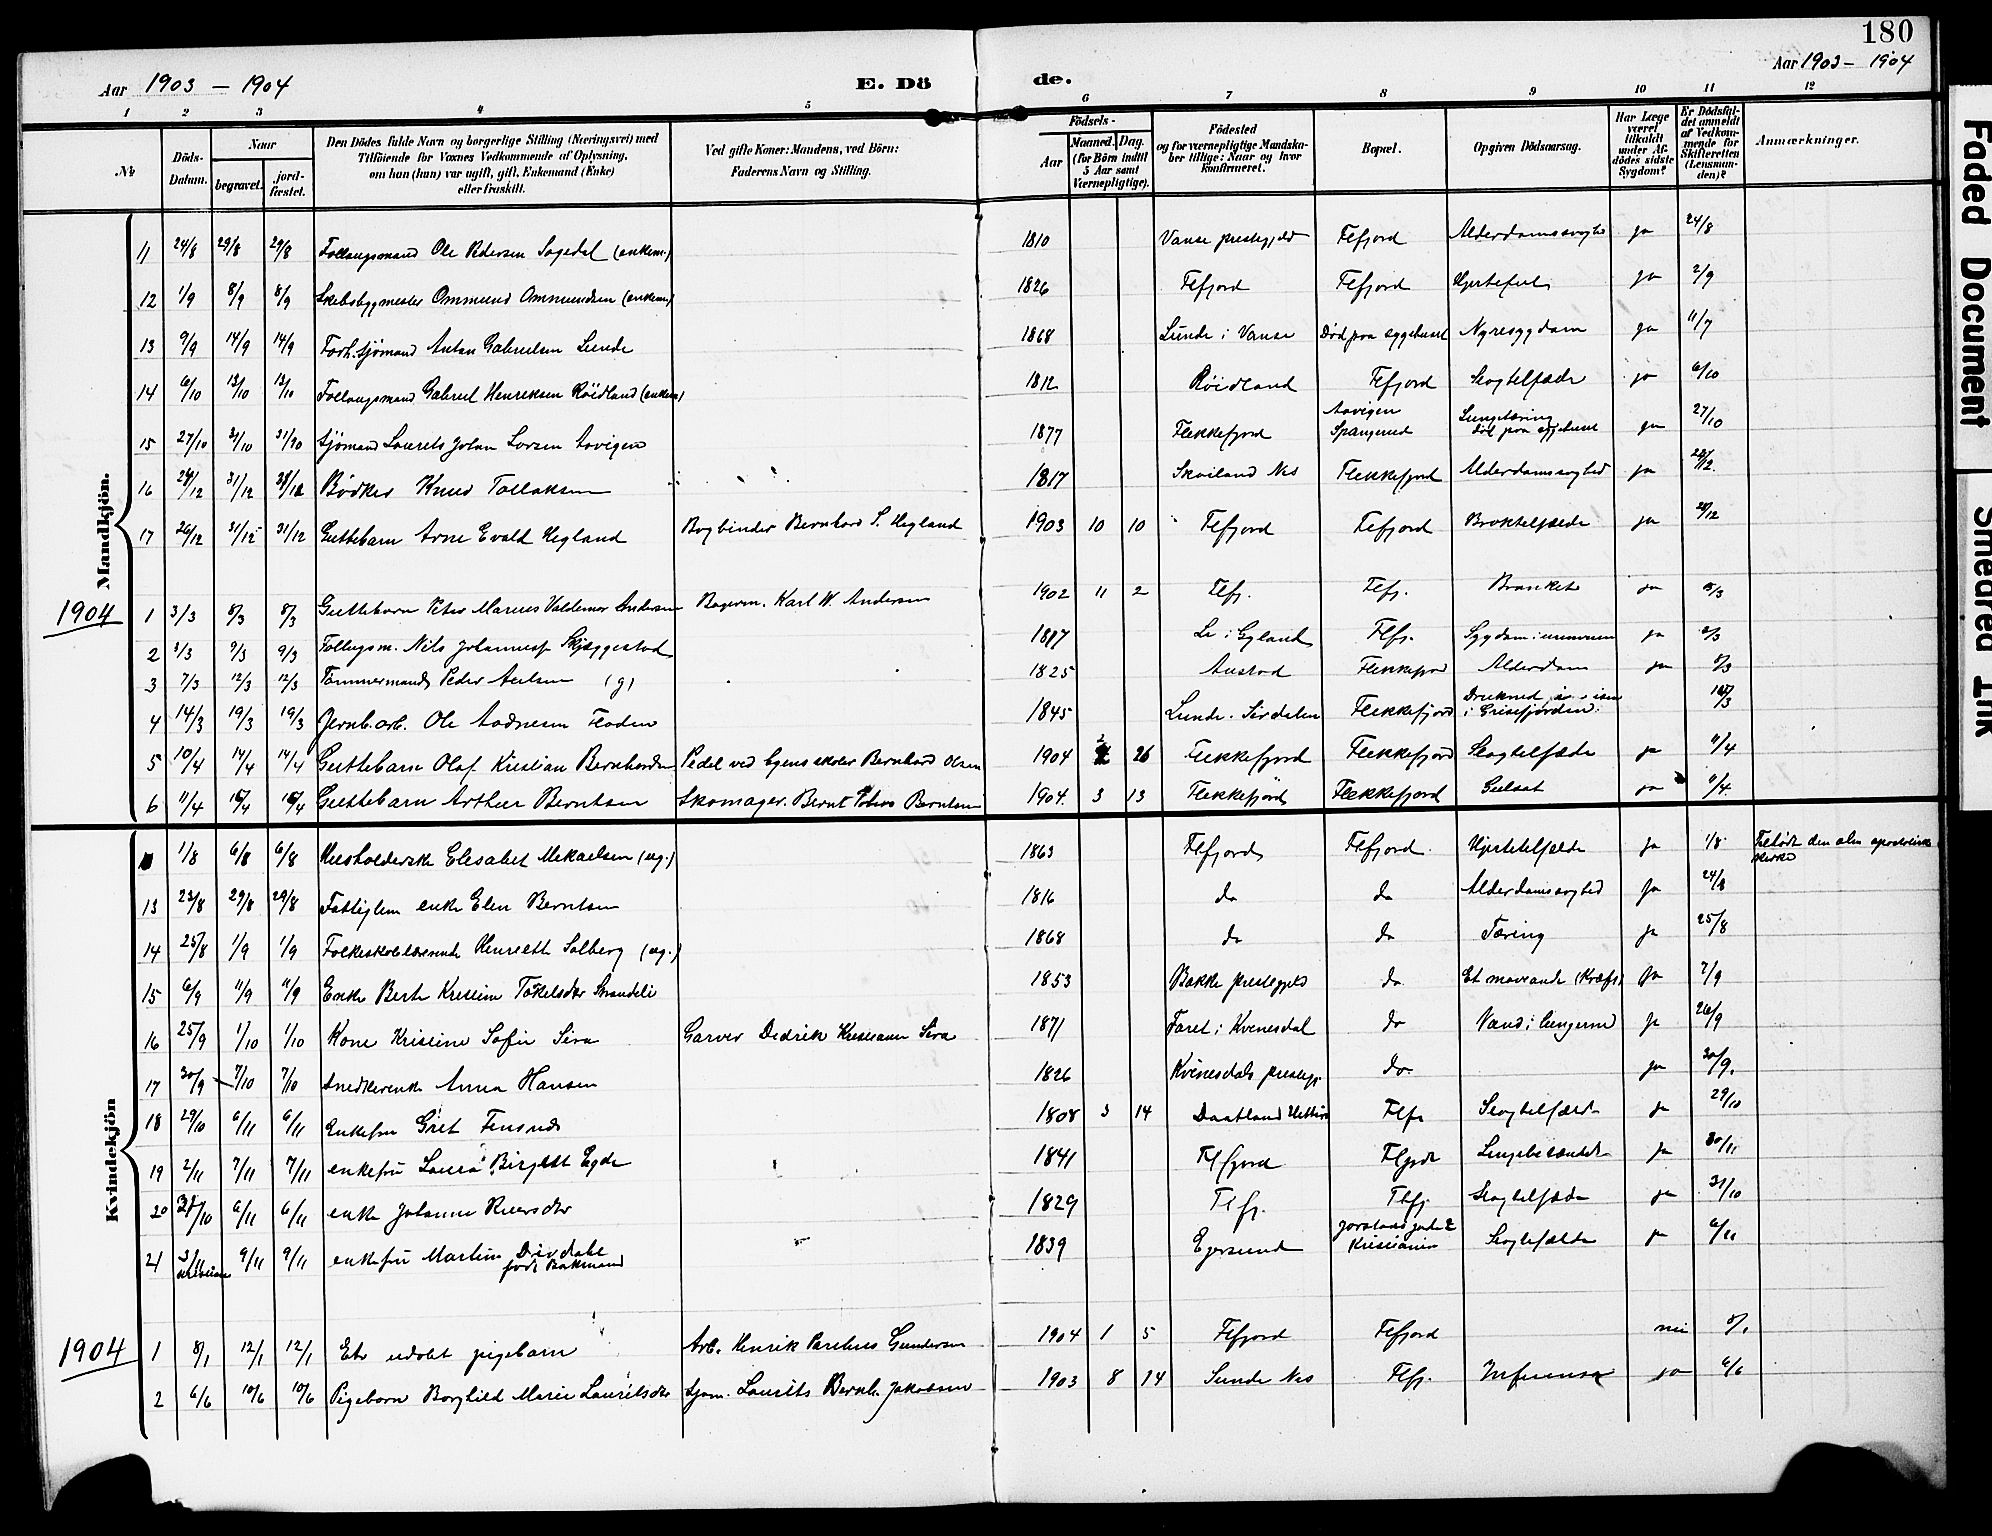 180
Aar 1903 – 1904
E. Dö de.
Aar 1903 – 1904
1 2 3 4 5 6 7 8 9 10 11 12
No
Döds-Datum.
Naar
begravet.
jord-fæstet.
Den Dödes fulde Navn og borgerlige Stilling (Næringsvei) med
Tilföiende for Voxnes Vedkommende af Oplysning,
om han (hun) var ugift, gift, Enkemand (Enke)
eller fraskilt.
Ved gifte Koner: Mandens, ved Börn:
Faderens Navn og Stilling.
Födsels-
Aar
Maaned. Dag.
(for Börn indtil
5 Aar samt
Værnepligtige).
Födested
og for værnepligtige Mandska-
ber tillige: Naar og hvor
konfirmeret.
Bopæl.
Opgiven Dödsaarsag.
Har Læge
været
tilkaldt
under Af-
dödes sidste
Sygdom?
Er Dödsfal-
det anmeldt
af Vedkom-
mende for
Skifteretten
(Lensman-
den)?
Anmærkninger.
Mandkjön.
11 24/8 29/8 29/8 Ole Pedersen Sagedal (enkem.) 1810 Vanse prestegjeld Flfjord Alderdomssvaghed ja 24/8
12 1/9 8/9 8/9 Skibsbygmester Ommund Ommundsen (enkem) 1826 Flfjord Flfjord Hjertefeil ja 2/9
13 9/9 14/9 14/9 Forh. sjømand Anton Gabrielsen Lunde 1868 Lunde i Vanse Død paa sygehuset Nyresygdom ja 11/9
14 6/10 13/10 13/10 Gabriel Henriksen Röidland (enkem) 1812 Röidland Flfjord Slagtilfælde ja 6/10
15 27/10 31/10 31/10 Sjömand Laurits Johan Larsen Aavigen 1877 Flekkefjord Aavigen Spangereid Lungetæring död paa sygehuset ja 27/10
16 31/12 Bödker Knud Tollaksen 1817 Nes Flekkefjord Alderdomssvaghed ja
17 26/12 31/12 31/12 Guttebarn Arne Evald Hegland Bogbinder Bernhard S. Hegland 1903 10 10 Flfjord Flfjord ja 28/12
1904
1 3/3 8/3 8/3 Guttebarn Peter Marius Valdemar Andersen Karl W. Andersen 1902 11 2 Flfj. Flfj. Bronkit ja
2 3/3 9/3 9/3 Nils Johannesen Skjeggestad i Gyland Flfj. ja
3 7/3 12/3 12/3 Tømmermand Peder Aulsen (g) 1825 Austad Flekkefjord Alderdom ja 8/3
4 14/3 19/3 19/3 Jernb. arb. Ole Aadnesen Floden 1845 Lunde. Sirdalen Flekkefjord Druknet i isen i Grisefjorden.
5 10/4 14/4 14/4 Guttebarn Olaf Kristian Bernhardsen Pedel ved byens skoler Bernhard Olsen 1904 2 26 Flekkefjord Flekkefjord Slagtilfælde ja 11/4
6 11/4 Guttebarn Arthur Berntsen Skomager. Bernt Tobias Berntsen 1904. 3 13 Flekkefjord Flekkefjord Gulsot ja 11/4
Kvindekjön
1/8 6/8 6/8 Husholderske Elisabet Mikaelsen (ug.) 1863 Flfjord Flfjord Hjertetilfælde ja 1/8 Tilhørt den alm apostoliske kirke
13 23/8 29/8 29/8 Fattiglem enke Elen Berntsen 1816 do do Alderdomssvaghed ja 24/8
14 25/8 1/9 1/9 Folkeskolelærerinde Henriette Salberg (ug.) 1868 do do Tæring ja 25/8
15 6/9 11/9 11/9 Enke Berte Kristine Tøkelsdtr Strandeli 1853 Bakke prestegjeld do Et maveonde (Kræft) ja 7/9
16 25/9 1/10 1/10 Kone Kristine Sofie Sira Garver Dedrik Kristiansen Sira 1871 Faret i Kvinesdal do Vand i lungerne ja 26/9
17 30/9 7/10 7/10 Snedkerenke Anna Hansen 1826 Kvinesdals prestegj. do ja 30/9.
18 29/10 6/11 6/11 Enkefru Gret Finsnes 1808 3 14 Daatland Hitterø Flfj Slagtilfælde ja 29/10
19 2/11 7/11 7/11 enkefru Laura Birgitte Egde 1841 Flfjord Flfjord Lungebetændelse ja
20 31/10 6/11 6/11 enke Johanne Reiersdtr 1829 Flfj. Flfj Slagtilfælde ja 31/10
21 3/11 9/11 9/11 enkefru Martine Drivdahl født Bakmand 1839 Egersund Jarstadsgade 2 Kristiania Slagtilfælde ja 6/11
1904
1 8/1 12/1 12/1 Et udøbt pigebarn Arb. Henrik Parelius Gundersen 1904 1 5 Flfjord Flfjord nei 8/1
2 6/6 10/6 10/6 Pigebarn Borghild Marie Lauritsdtr Sjøm. Laurits Bernh. Jakobsen 1903 8 14 Sunde Nes Flfj. Influensa ja 6/6
Faded Document
Smeared Ink